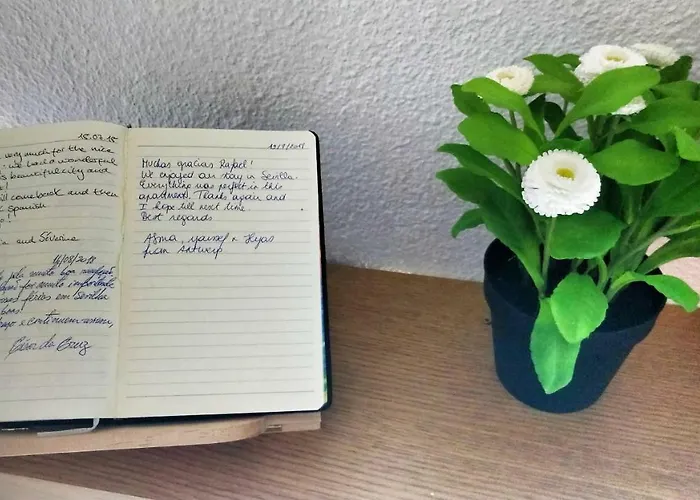 15.07.15
very much for the nice
we had a wonderful
beautiful city and
!
ill come back and then
Spanish
!
and Séverine
14/08/2018
muito boa
foi muito importante
férias em Sevilha
e continuem assim,
da Cruz
Muchas gracias Rafael!
We enjoyed our stay in Sevilla.
Everything was perfect in this
apartment. Thanks again and
I hope till next time.
Best regards
Asma, youssef + Ilyas
from Antwerp